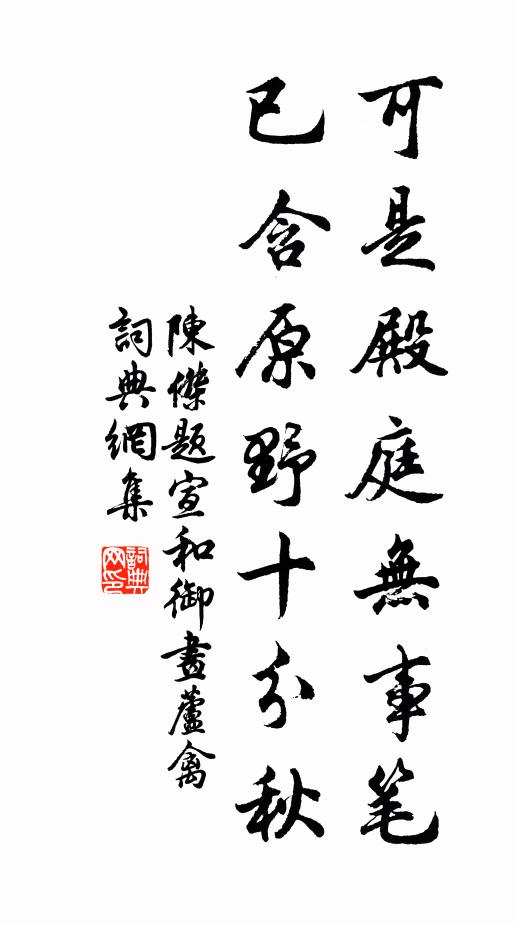 可是殿庭無事笔
已含原野十分秋
陳傑題宣和御畫蘆禽
詞典網集
詞典网印